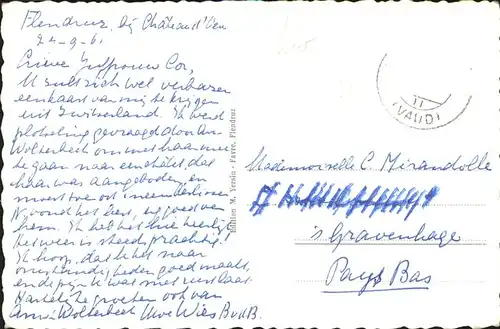 Flendruz, bij Château d'Oex
22-9-61
Lieve Juffrouw Cor,
U zult zich wel verbazen
een kaart van mij te krijgen
uit Zwitserland. Ik werd
plotseling gevraagd door An
Wolterbeek om met haar mee
te gaan naar een châlet dat
haar was aangeboden, en
moest toe
N vond het best, en goed voor
hem. Ik heb het hier heerlijk!
het weer is steeds prachtig!
Ik hoop, dat het U naar
omstandigheden goed maakt,
en de pijn U wat met rust laat.
Hartelijke groeten ook van
An Wolterbeek Uw Wies B.v.d.B.
Edition M. Yersin-Favre, Flendruz
11
(VAUD)
Mademoiselle C. Mirandolle
's Gravenhage
Pays Bas